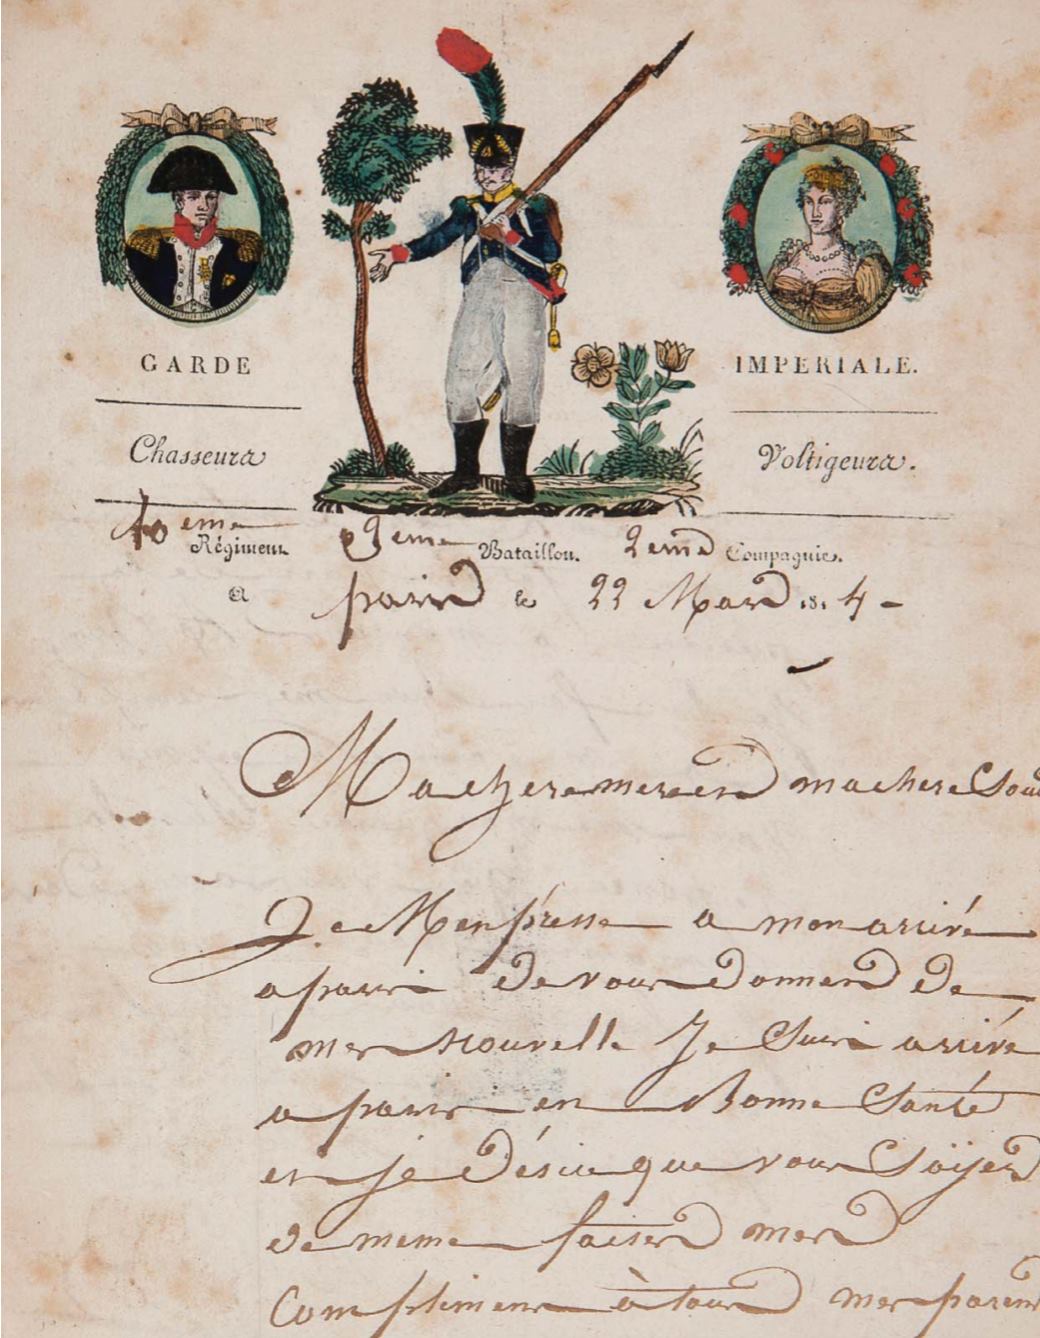 GARDE IMPERIALE.
Chasseurs Voltigeurs.
10eme Régiment 2eme Bataillon. 2eme Compagnie.
A paris le 22 Mars 1814 -
Ma chere mere et ma chere Soeu
Je M'enpresse a mon arrivé
a paris de vous donner de
mes nouvelle Je Suis arrivé
a paris en Bonne Santé
et je désire que vous Soÿer
de meme faites mes
Compliment à tous mes parent